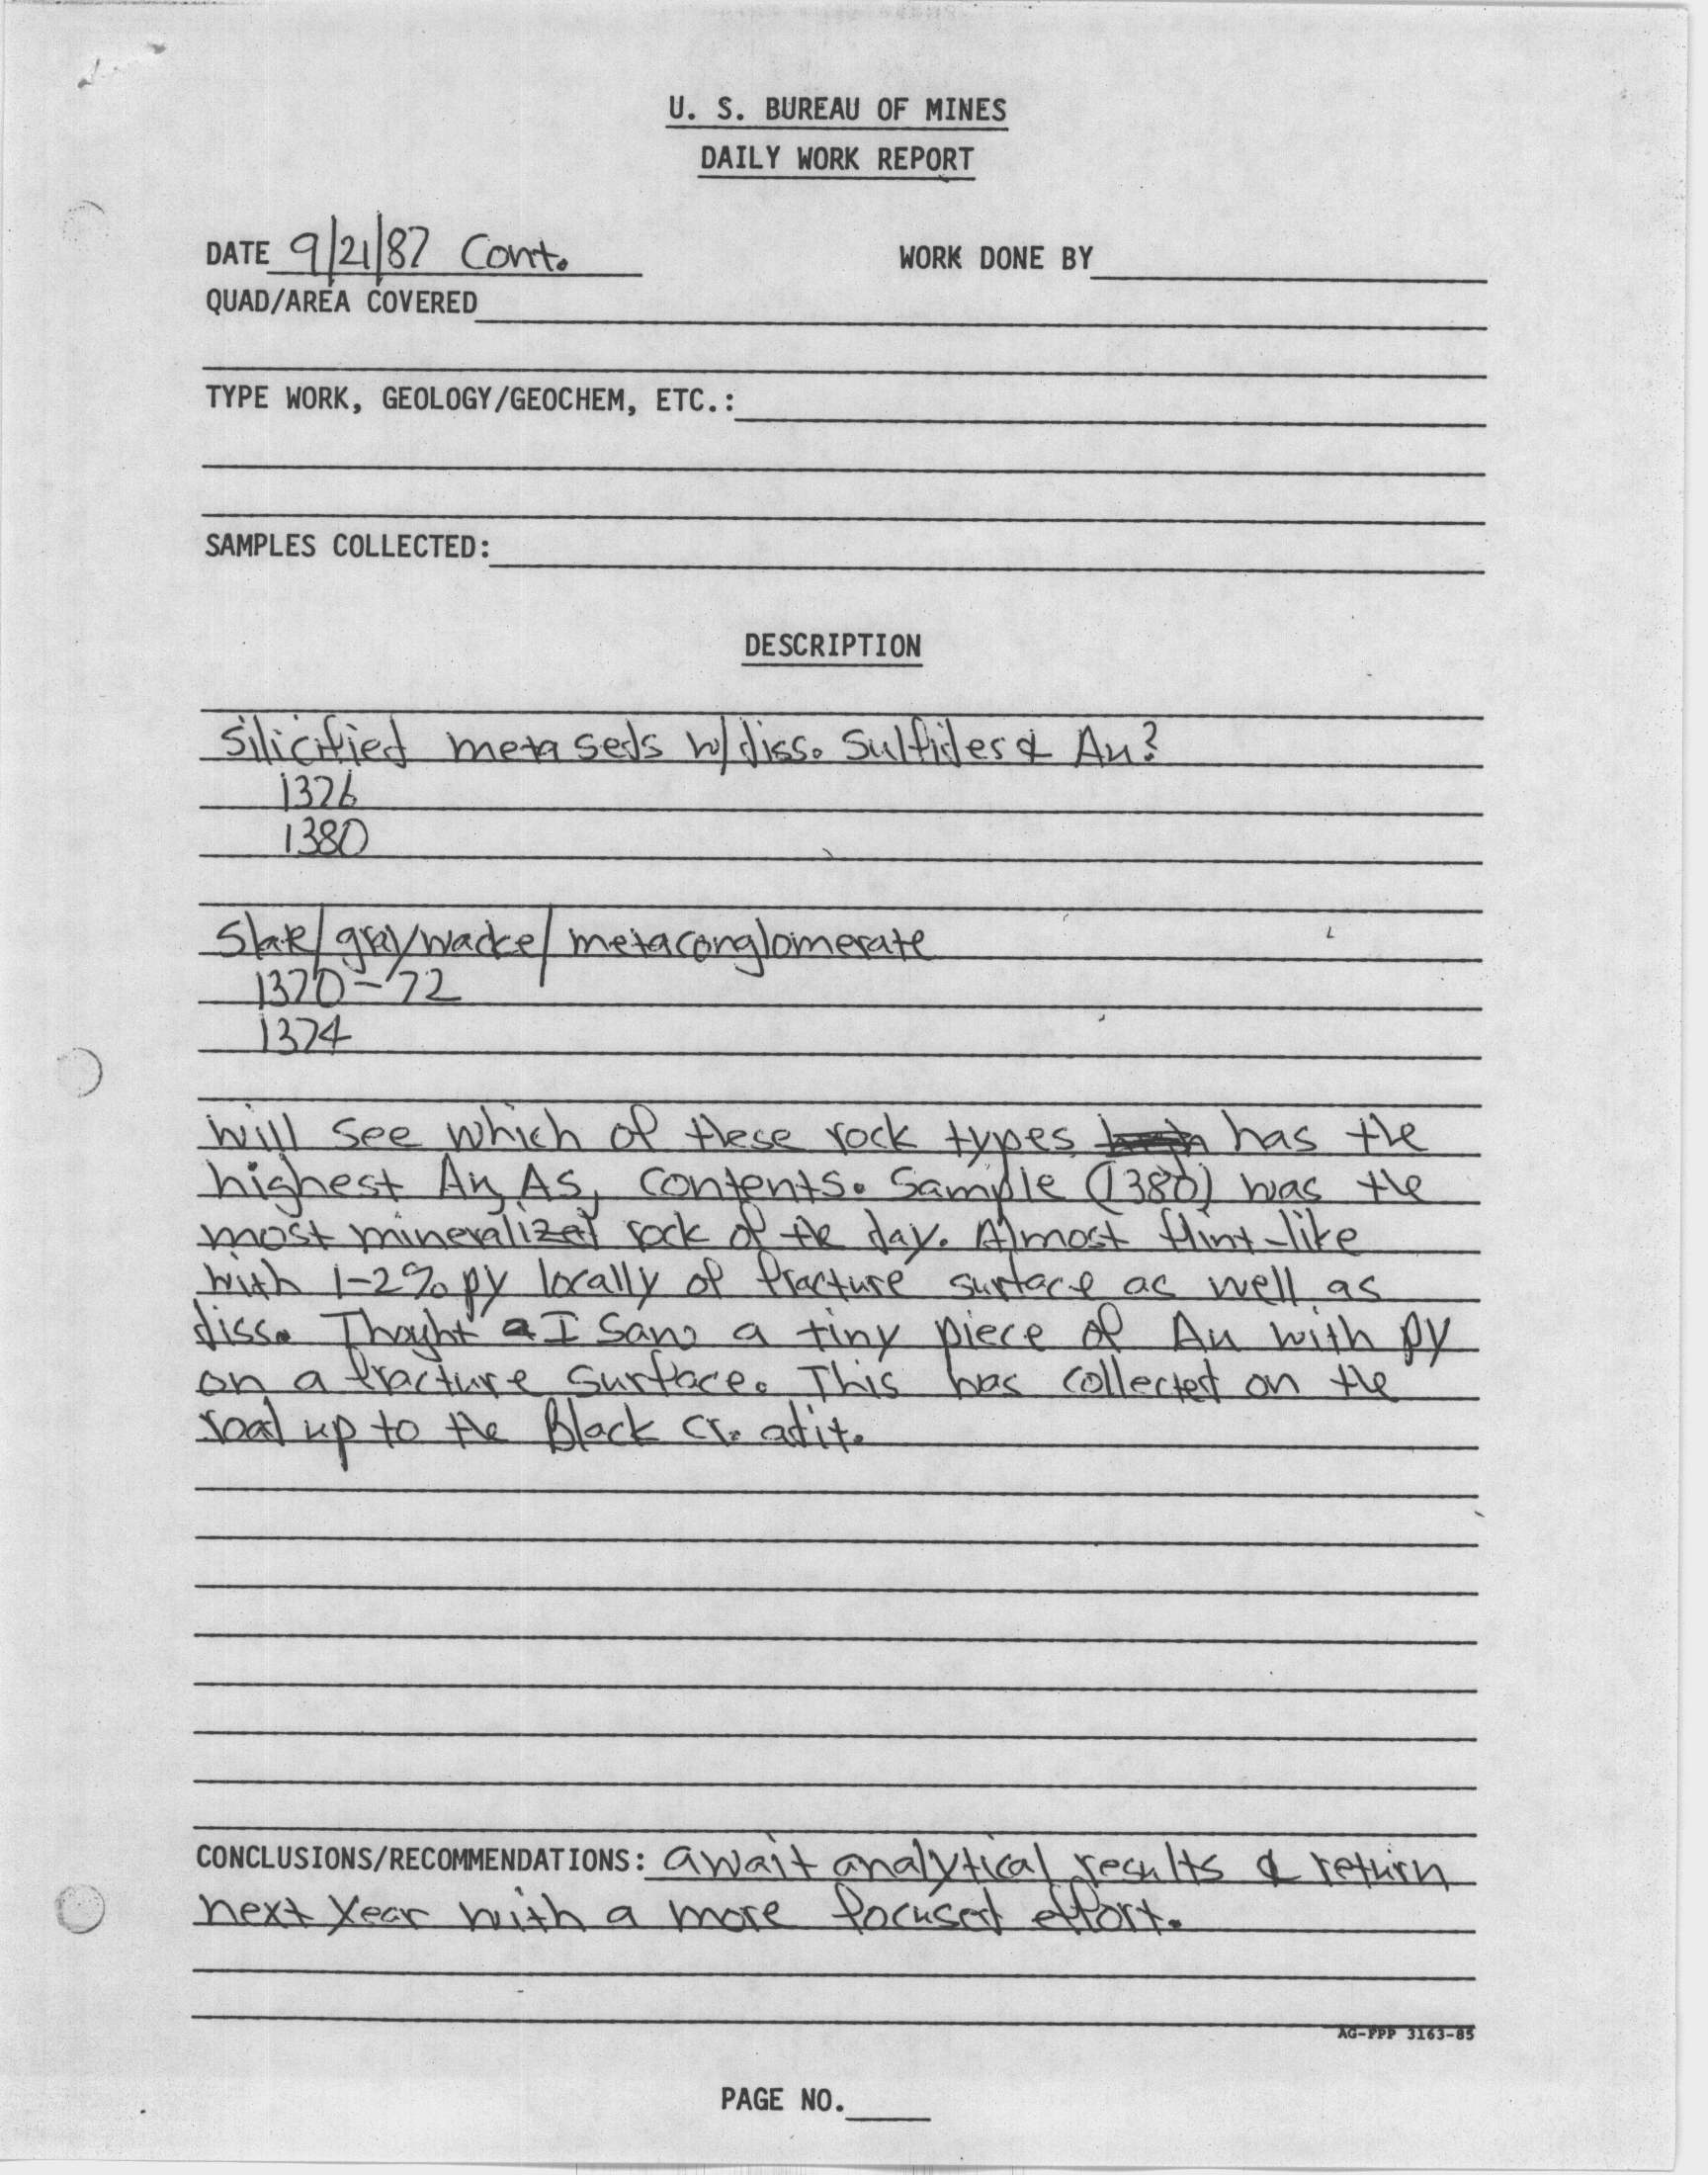 U. S. BUREAU OF MINES
DAILY WORK REPORT
DATE 9/21/87 Cont. WORK DONE BY
QUAD/AREA COVERED
TYPE WORK, GEOLOGY/GEOCHEM, ETC.:
SAMPLES COLLECTED:
DESCRIPTION
Silicified meta seds w/diss. sulfides & Au?
1376
1380
Slate/graywacke/metaconglomerate
1370-72
1374
will see which of these rock types has the
highest Au, As, contents. Sample (1380) was the
most mineralized rock of the day. Almost flint-like
with 1-2% py locally of fracture surface as well as
diss. Thought I saw a tiny piece of Au with py
on a fracture surface. This was collected on the
road up to the Black Cr. adit.
CONCLUSIONS/RECOMMENDATIONS: await analytical results & return
next year with a more focused effort.
AG-FPP 3163-85
PAGE NO.